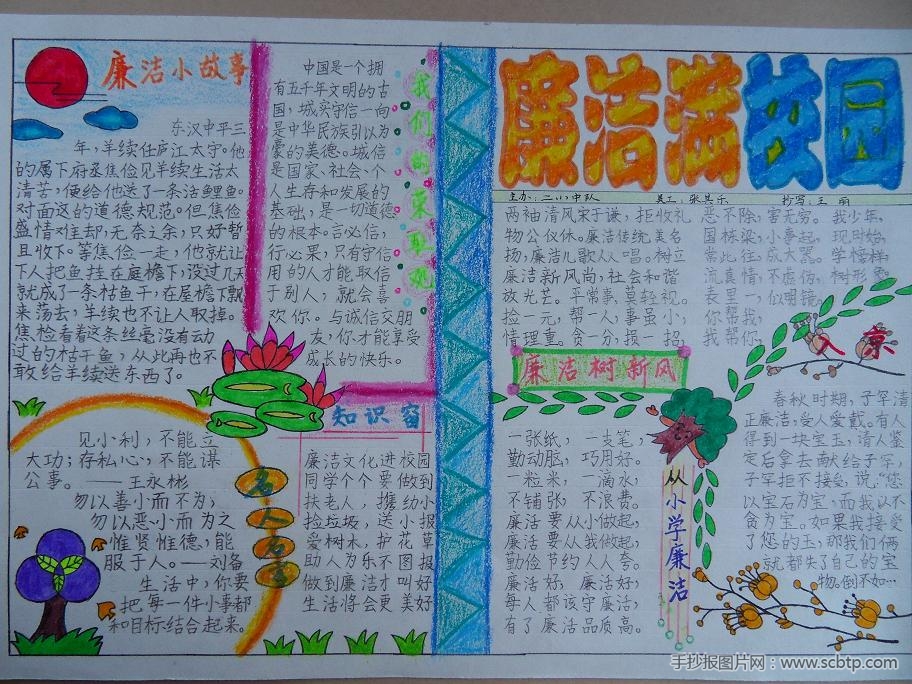 廉洁小故事
东汉中平三
年,羊续任庐江太守。他
的属下府丞焦俭见羊续生活太
清苦,便给他送了一条活鲤鱼。
对面这的道德规范。但焦俭
盛情难却,无奈之余,只好暂
且收下。等焦俭一走,他就让
下人把鱼挂在庭檐下,没过几天
就成了一条枯鱼干,在屋檐下飘
来荡去,羊续也不让人取掉。
焦检看着这条丝毫没有动
过的枯干鱼,从此再也不
敢给羊续送东西了。
中国是一个拥
有五千年文明的古
国,城实守信一向
是中华民族引以为
豪的美德。城信
是国家、社会、个
人生存和发展的
基础,是一切道德
的根本。言必信,
行必果,只有守信
用的人才能取信
于别人,就会喜
欢你。与诚信交朋
友,你才能享受
成长的快乐。
我们的荣耻观
见小利,不能立
大功;存私心,不能谋
公事。——王永彬
勿以善小而不为,
勿以恶小而为之
惟贤惟德,能
服于人。——刘备
生活中,你要
把每一件小事都
和目标结合起来。
名人名言
知识窗
廉洁文化进校园
同学个个要做到
扶老人,携幼小
捡垃圾,送小报
爱树木,护花草
助人为乐不图报
做到廉洁才叫好
生活将会更美好
廉洁满校园
主办:二(1)中队 美工:张其乐 抄写:王雨
两袖清风宋于谦,拒收礼
物公仪休。廉洁传统美名
扬,廉洁儿歌从人唱。树立
廉洁新风尚,社会和谐
放光芒。平常事,莫轻视。
捡一元,帮一人,事虽小,
情理重。贪一分,损一招
恶不除,害无穷。我少年,
国栋梁,小事起,现时始,
常此往,成大器。学榜样,
流真情,不虚伪,树形象
表里一,似明镜。
你帮我,
我帮你,
廉洁树新风
一张纸,一支笔,
勤动脑,巧用好。
一粒米,一滴水,
不铺张,不浪费。
廉洁要从小做起,
廉洁要从我做起,
勤俭节约人人夸。
廉洁好,廉洁好,
每人都该守廉洁,
有了廉洁品质高。
从小学廉洁
春秋时期,子罕清
正廉洁,受人爱戴。有人
得到一块宝玉,请人鉴
定后拿去献给子罕,
子罕拒不接受,说:“您
以宝石为宝,而我以不
贪为宝。如果我接受
了您的玉,那我们俩
就都失了自己的宝
物。倒不如…
手抄报图片网:www.scbtp.com